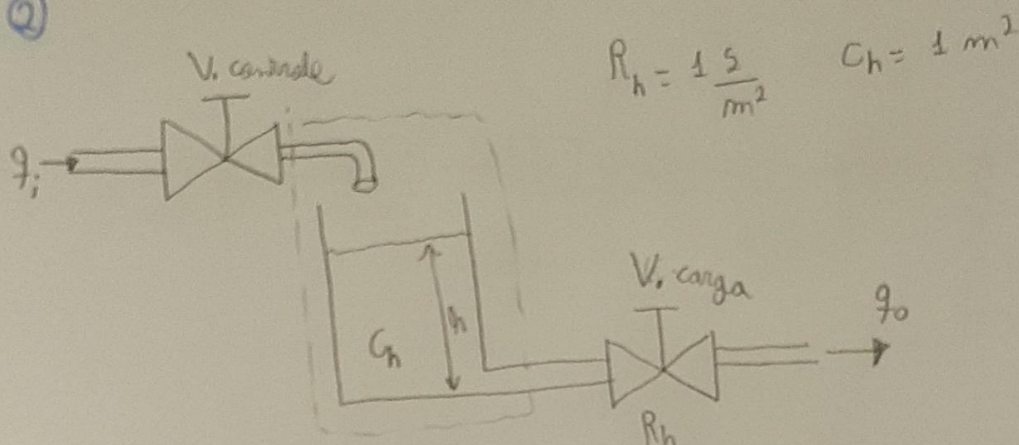 2
V. controle
R_h = 1 s/m² C_h = 1 m²
q_i
V. carga
q_o
h
C_h
R_h